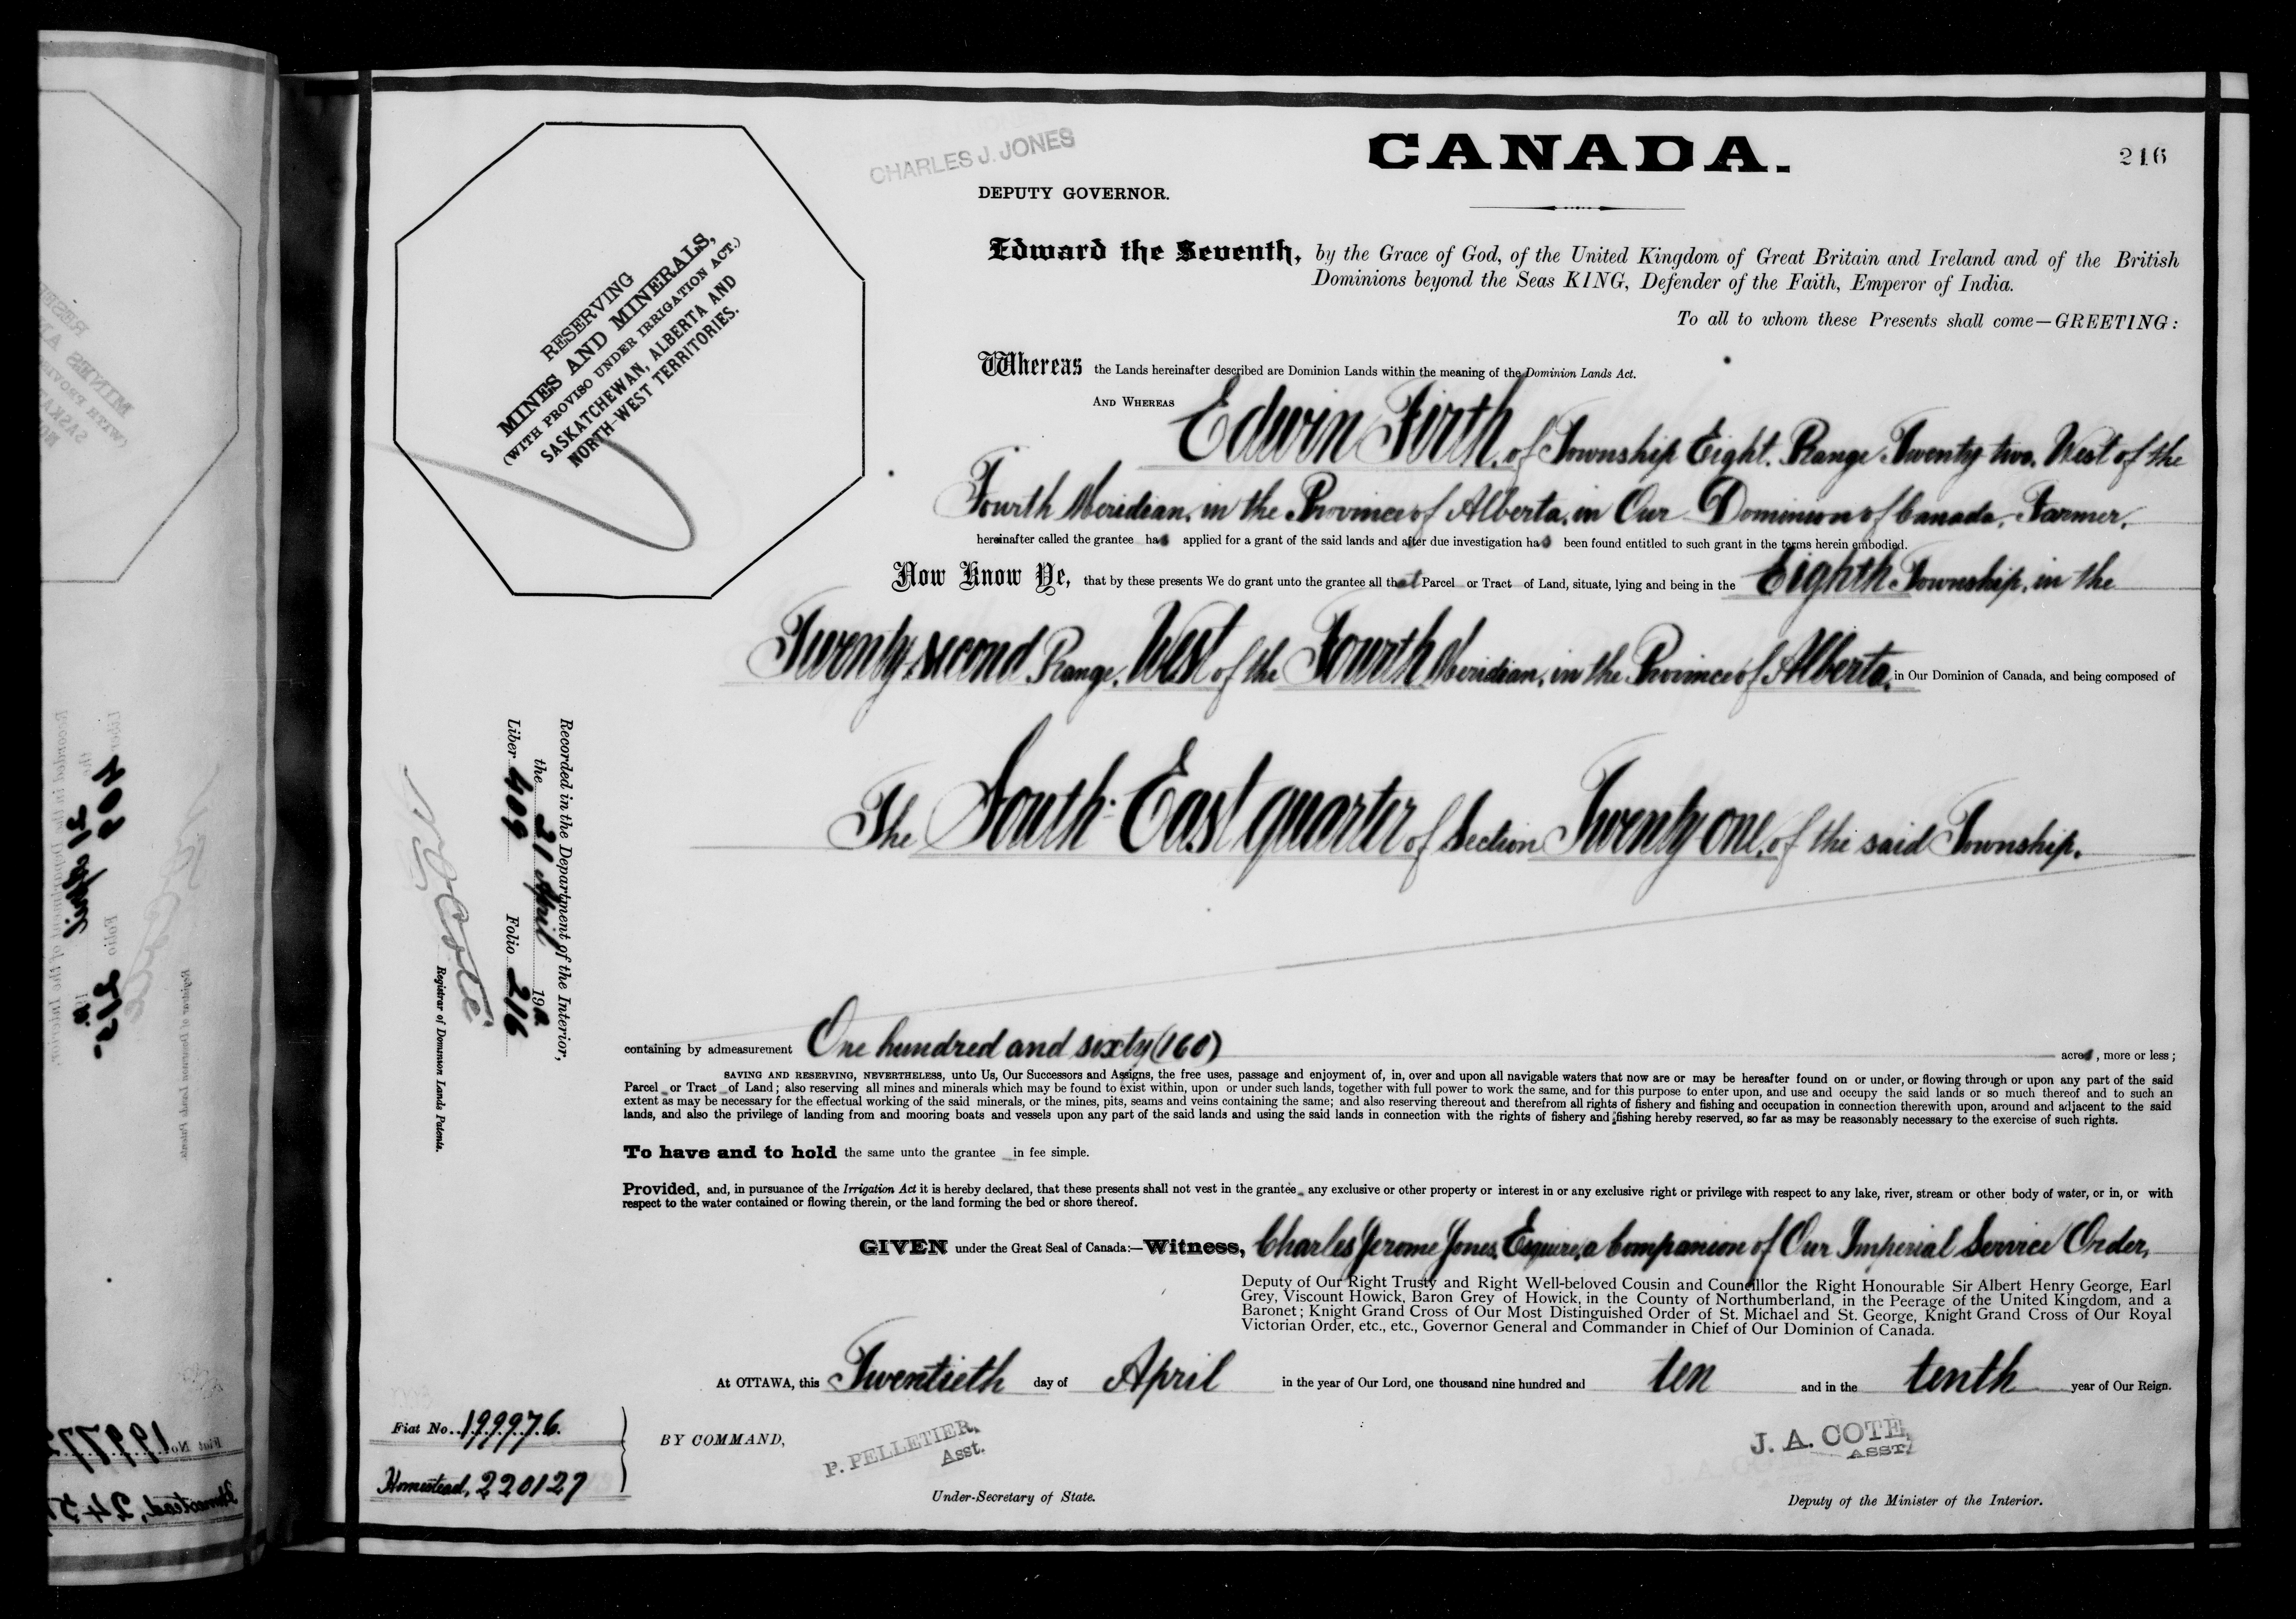 CHARLES J. JONES
CANADA.
216
DEPUTY GOVERNOR.
RESERVING
MINES AND MINERALS,
(WITH PROVISO UNDER IRRIGATION ACT.)
SASKATCHEWAN, ALBERTA AND
NORTH-WEST TERRITORIES.
Edward the Seventh, by the Grace of God, of the United Kingdom of Great Britain and Ireland and of the British
Dominions beyond the Seas KING, Defender of the Faith, Emperor of India.
To all to whom these Presents shall come—GREETING:
Whereas the Lands hereinafter described are Dominion Lands within the meaning of the Dominion Lands Act.
AND WHEREAS Edwin Firth, of Township Eight, Range Twenty-two, West of the
Fourth Meridian, in the Province of Alberta, in Our Dominion of Canada, Farmer,
hereinafter called the grantee has applied for a grant of the said lands and after due investigation has been found entitled to such grant in the terms herein embodied.
Now Know Ye, that by these presents We do grant unto the grantee all that Parcel or Tract of Land, situate, lying and being in the Eighth Township, in the
Twenty-second Range, West of the Fourth Meridian, in the Province of Alberta, in Our Dominion of Canada, and being composed of
The South-East quarter of Section Twenty one, of the said Township.
containing by admeasurement One hundred and sixty (160) acres, more or less;
SAVING AND RESERVING, NEVERTHELESS, unto Us, Our Successors and Assigns, the free uses, passage and enjoyment of, in, over and upon all navigable waters that now are or may be hereafter found on or under, or flowing through or upon any part of the said
Parcel or Tract of Land; also reserving all mines and minerals which may be found to exist within, upon or under such lands, together with full power to work the same, and for this purpose to enter upon, and use and occupy the said lands or so much thereof and to such an
extent as may be necessary for the effectual working of the said minerals, or the mines, pits, seams and veins containing the same; and also reserving thereout and therefrom all rights of fishery and fishing and occupation in connection therewith upon, around and adjacent to the said
lands, and also the privilege of landing from and mooring boats and vessels upon any part of the said lands and using the said lands in connection with the rights of fishery and fishing hereby reserved, so far as may be reasonably necessary to the exercise of such rights.
To have and to hold the same unto the grantee in fee simple.
Provided, and, in pursuance of the Irrigation Act it is hereby declared, that these presents shall not vest in the grantee any exclusive or other property or interest in or any exclusive right or privilege with respect to any lake, river, stream or other body of water, or in, or with
respect to the water contained or flowing therein, or the land forming the bed or shore thereof.
GIVEN under the Great Seal of Canada:—Witness, Charles Jerome Jones, Esquire, a Companion of Our Imperial Service Order,
Deputy of Our Right Trusty and Right Well-beloved Cousin and Councillor the Right Honourable Sir Albert Henry George, Earl
Grey, Viscount Howick, Baron Grey of Howick, in the County of Northumberland, in the Peerage of the United Kingdom, and a
Baronet; Knight Grand Cross of Our Most Distinguished Order of St. Michael and St. George, Knight Grand Cross of Our Royal
Victorian Order, etc., etc., Governor General and Commander in Chief of Our Dominion of Canada.
At OTTAWA, this Twentieth day of April in the year of Our Lord, one thousand nine hundred and ten and in the tenth year of Our Reign.
BY COMMAND,
P. PELLETIER,
Asst.
Under-Secretary of State.
J. A. COTE,
ASST.
Deputy of the Minister of the Interior.
Fiat No. 199976.
Homestead, 220127
Recorded in the Department of the Interior,
the 21 April 19
Liber 409 Folio 216
N O Coté
Registrar of Dominion Lands Patents.